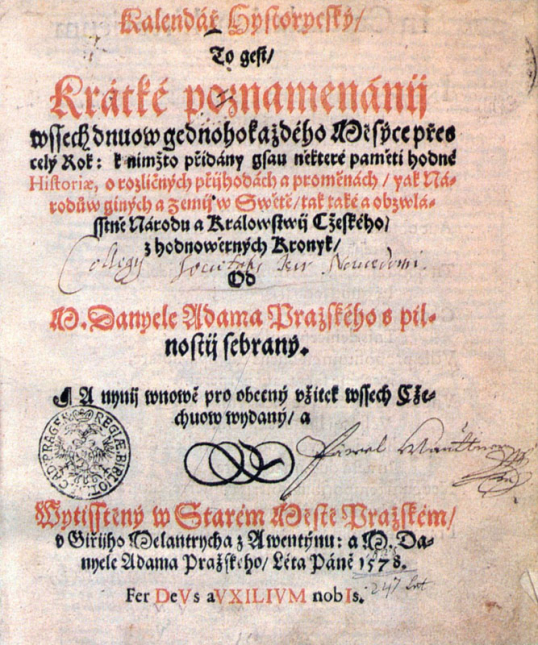 Kalendář Hystorycký/
To gest/
Krátké poznamenánij
wssech dnuow gednohokaždého Měsýce přes
celý Rok: k nimžto přidány gsau některé paměti hodné
Historiæ, o rozličných přijhodách a proměnách / yak Ná-
rodůw giných a Zemij w Swětě / tak také a obzwlá-
sstně Národu a Králowstwij Cžeského /
z hodnowěrných Kronyk /
Collegij Societatis Jesu
Od
M. Danyele Adama Pražského s pil-
nostij sebraný.
¶ A nynij wnowě pro obecný vžitek wssech Cže-
chuow wydaný / a
REGIÆ BIBLIOT. ACAD. PRAGEN.
Pawel
Wytisstěný w Starém Městě Pražském /
v Giřijho Melantrycha z Awentýnu: a M. Da-
nyele Adama Pražského / Léta Páně 1578.
247
Fer DeVs aVXILIVM nobIs.